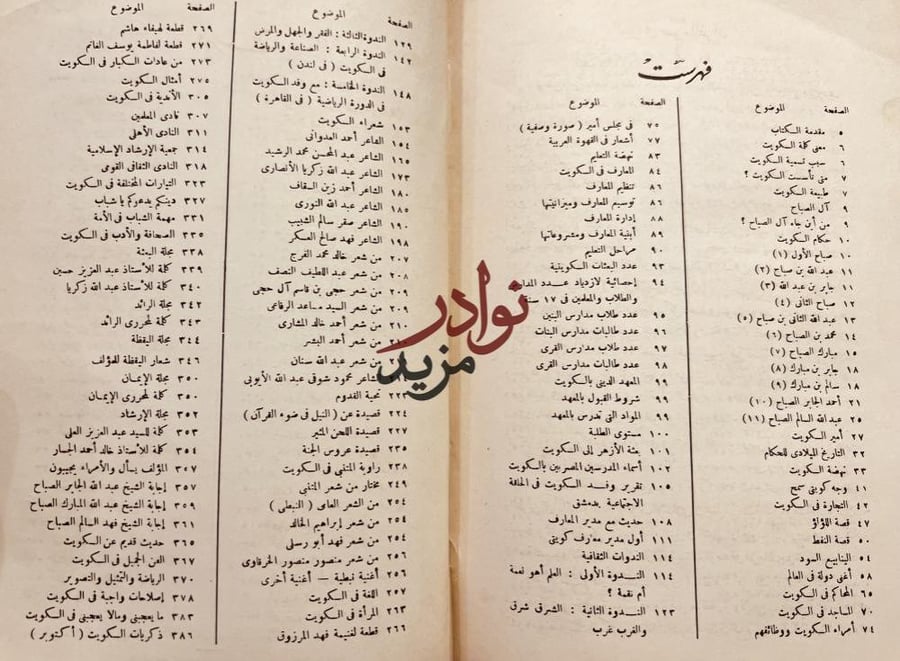 فهرست
الصفحة الموضوع
٥ مقدمة الكتاب
٦ معنى كلمة الكويت
٦ سبب تسمية الكويت
٧ متى تأسست الكويت ؟
٧ طبيعة الكويت
٩ آل الصباح
٩ من أين جاء آل الصباح ؟
١٠ حكام الكويت
١٠ صباح الأول (١)
١١ عبد الله بن صباح (٢)
١١ جابر بن عبد الله (٣)
١٢ صباح الثانى (٤)
١٣ عبد الله الثانى بن صباح (٥)
١٤ محمد بن صباح (٦)
١٥ مبارك الصباح (٧)
١٨ جابر بن مبارك (٨)
١٨ سالم بن مبارك (٩)
٢١ أحمد الجابر الصباح (١٠)
٢٥ عبد الله السالم الصباح (١١)
٢٧ أمير الكويت
٣٢ التاريخ الميلادى للحكام
٣٣ نهضة الكويت
٤١ وجه كويتى سمح
٤٢ التجارة فى الكويت
٤٧ قصة اللؤلؤ
٥٠ قصة النفط
٥٤ الينابيع السود
٥٨ أغنى دولة فى العالم
٦٥ المحاكم فى الكويت
٧٠ المساجد فى الكويت
٧٤ أمراء الكويت ووظائفهم
الصفحة الموضوع
٧٥ فى مجلس أمير ( صورة وصفية )
٧٧ أشعار فى القهوة العربية
٨٣ نهضة التعليم
٨٤ المعارف فى الكويت
٨٦ تنظيم المعارف
٨٦ توسيم المعارف وميزانيتها
٨٨ إدارة المعارف
٨٩ أبنية المعارف ومشروعاتها
٩٠ مراحل التعليم
٩٣ عدد البعثات الكويتية
٩٤ إحصائية لازدياد عدد المدارس
والطلاب والمعلمين فى ١٧ سنة
٩٥ عدد طلاب مدارس البنين
٩٦ عدد طالبات مدارس البنات
٩٧ عدد طلاب مدارس القرى
٩٨ عدد طالبات مدارس القرى
٩٩ المعهد الدينى بالكويت
٩٩ شروط القبول بالمعهد
٩٩ المواد التى تدرس بالمعهد
١٠٠ مستوى الطلبة
١٠١ بعثة الأزهر إلى الكويت
١٠٢ أسماء المدرسين المصريين بالكويت
١٠٥ تقرير وفد الكويت فى الحلقة
الاجتماعية بدمشق
١٠٨ حديث مع مدير المعارف
١١١ أول مدير معارف كويتى
١١٤ الندوات الثقافية
١١٤ الندوة الأولى : العلم أهو نعمة
أم نقمة ؟
١٢٣ الندوة الثانية : الشرق شرق
والغرب غرب
الصفحة الموضوع
١٢٩ الندوة الثالثة : الفقر والجهل والمرض
١٤٢ الندوة الرابعة : الصناعة والرياضة
فى الكويت ( فى لندن )
١٤٨ الندوة الخامسة : مع وفد الكويت
فى الدورة الرياضية ( فى القاهرة )
١٥٣ شعراء الكويت
١٥٤ الشاعر أحمد العدوانى
١٦٥ الشاعر عبد المحسن محمد الرشيد
١٧٣ الشاعر عبد الله زكريا الأنصارى
١٨٠ الشاعر أحمد زين السقاف
١٨٥ الشاعر عبد الله النورى
١٩٠ الشاعر صقر سالم الشبيب
١٩٨ الشاعر فهد صالح العسكر
٢٠٧ من شعر خالد محمد الفرج
٢٠٨ من شعر عبد اللطيف النصف
٢٠٩ من شعر حجى بن قاسم آل حجى
٢٠٩ من شعر السيد مساعد الرفاعى
٢١٠ من شعر أحمد خالد المشارى
من شعر أحمد البشر
من شعر عبد الله سنان
الشاعر محمود شوقى عبد الله الأيوبى
٢٢٣ تحية القدوم
٢٢٤ قصيدة عن ( النيل فى ضوء القرآن )
٢٢٧ قصيدة اللحن المثير
٢٣٥ قصيدة عروس الجنة
٢٣٨ راوية المتنبى فى الكويت
٢٤٩ مختار من شعر المتنبى
٢٥٤ من الشعر العامى ( النبطى )
٢٥٤ من شعر إبراهيم الخالد
٢٥٤ من شعر فهد أبو رسلى
٢٥٦ من شعر منصور منصور الخرقاوى
٢٥٦ أغنية نبطية — أغنية أخرى
٢٥٧ اللغة فى الكويت
٢٦٣ المرأة فى الكويت
٢٦٦ قطعة لغنيمة فهد المرزوق
الصفحة الموضوع
٢٦٩ قطعة لهيفاء هاشم
٢٧١ قطعة لفاطمة يوسف الغانم
٢٧٣ من عادات الكبار فى الكويت
٢٧٥ أمثال الكويت
٣٠٥ الأندية فى الكويت
٣٠٧ نادى المعلمين
٣١١ النادى الأهلى
٣١٤ جمعية الإرشاد الإسلامية
٣١٨ النادى الثقافى القومى
٣٢٣ التيارات المختلفة فى الكويت
٣٢٧ دينكم يدعوكم يا شباب
٣٣١ مهمة الشباب فى الأمة
٣٣٥ الصحافة والأدب فى الكويت
٣٣٨ مجلة البعثة
٣٣٩ كلمة للأستاذ عبد العزيز حسين
٣٤٠ كلمة للأستاذ عبد الله زكريا
٣٤٢ مجلة الرائد
٣٤٣ كلمة لمحررى الرائد
٣٤٤ مجلة اليقظة
٣٤٦ شعار اليقظة للمؤلف
٣٥٠ مجلة الإيمان
٣٥٠ كلمة لمحررى الإيمان
٣٥٢ مجلة الإرشاد
٣٥٣ كلمة للسيد عبد العزيز العلى
٣٥٤ كلمة للأستاذ خالد أحمد الجسار
٣٥٧ المؤلف يسأل والأمراء يجيبون
٣٥٧ إجابة الشيخ عبد الله الجابر الصباح
٣٥٩ إجابة الشيخ عبد الله المبارك الصباح
٣٦١ إجابة الشيخ فهد السالم الصباح
٣٦٥ حديث قديم عن الكويت
٣٦٧ الفن الجميل فى الكويت
٣٧٠ الرياضة والتمثيل والتصوير
٣٧٨ إصلاحات واجبة فى الكويت
٣٨٣ ما يعجبنى وما لا يعجبنى فى الكويت
٣٨٦ ذكريات الكويت ( أكتوبر )
نوادر
مزيد